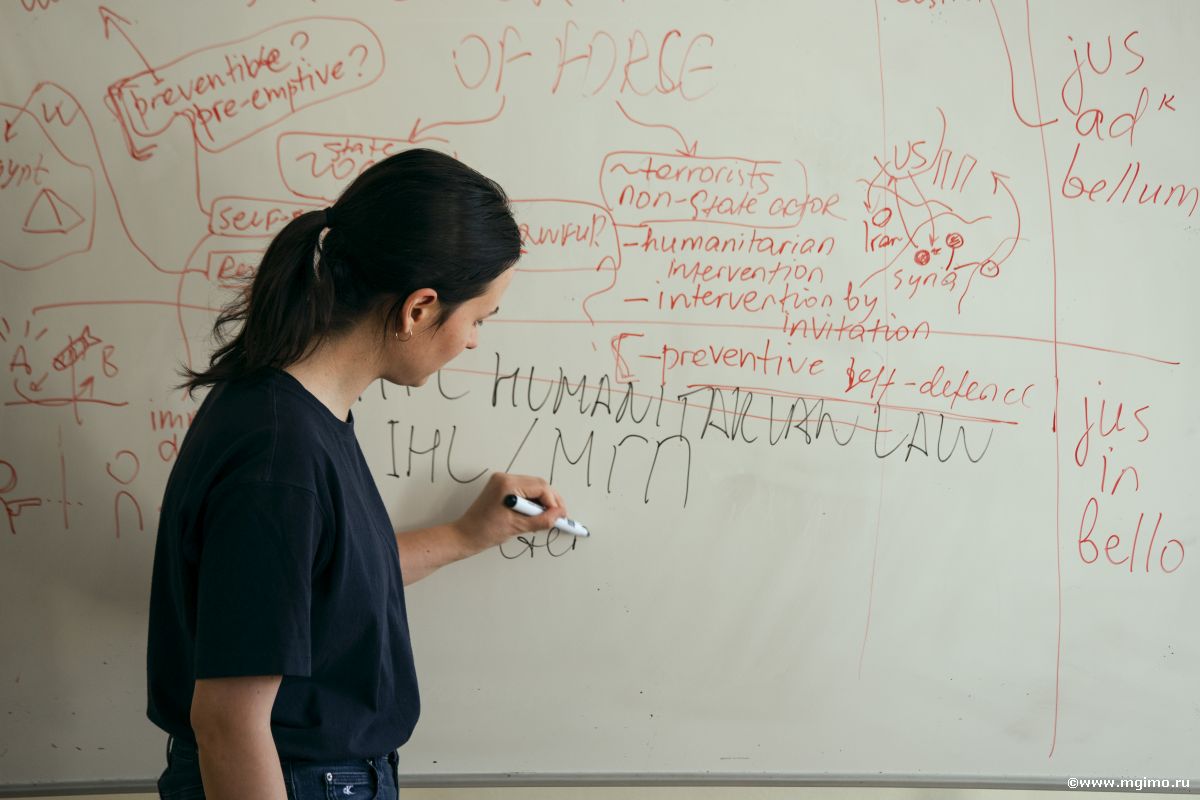 preventible?
pre-emptive?
OF FORSE
state
~terrorists
non-state actor
-humanitarian
intervention
-intervention by
invitation
-preventive self-defence
US/ПП
Iran
Syria
jus
ad
bellum
A
B
HUMANITARIAN LAW
IHL/МГП
Ger
jus
in
bello
©www.mgimo.ru